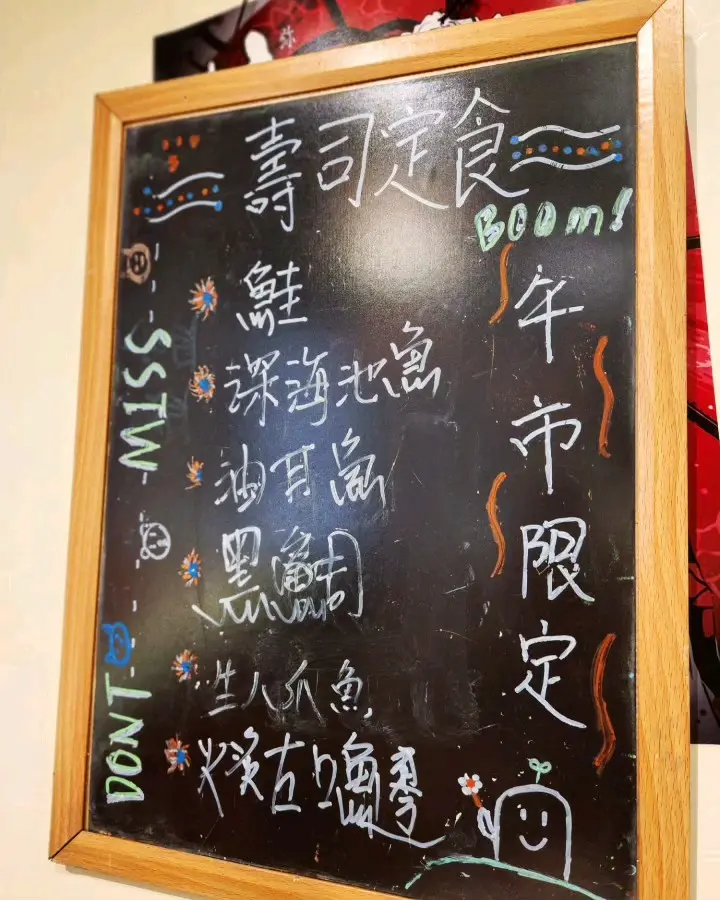 壽司定食
BOOM!
午市限定
鮭
深海池魚
油甘魚
黑鯛
生八爪魚
火炙左口魚
DONT MISS
弥